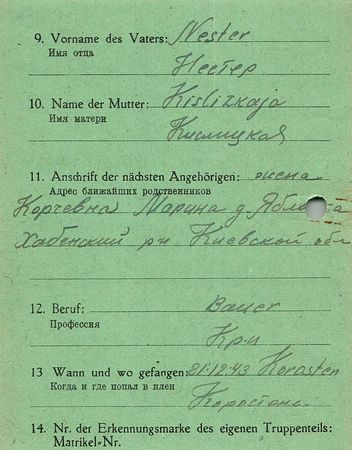 9. Vorname des Vaters: Nester
Имя отца
Нестер
10. Name der Mutter: Kislizkaja
Имя матери
Кислицкая
11. Anschrift der nächsten Angehörigen: жена
Адрес ближайших родственников
Корчевна Марина д.
Хабенский рн Киевской обл
12. Beruf: Bauer
Профессия
Кр-н
13 Wann und wo gefangen: 21.12.43 Korosten
Когда и где попал в плен
14. Nr. der Erkennungsmarke des eigenen Truppenteils:
Matrikel-Nr.